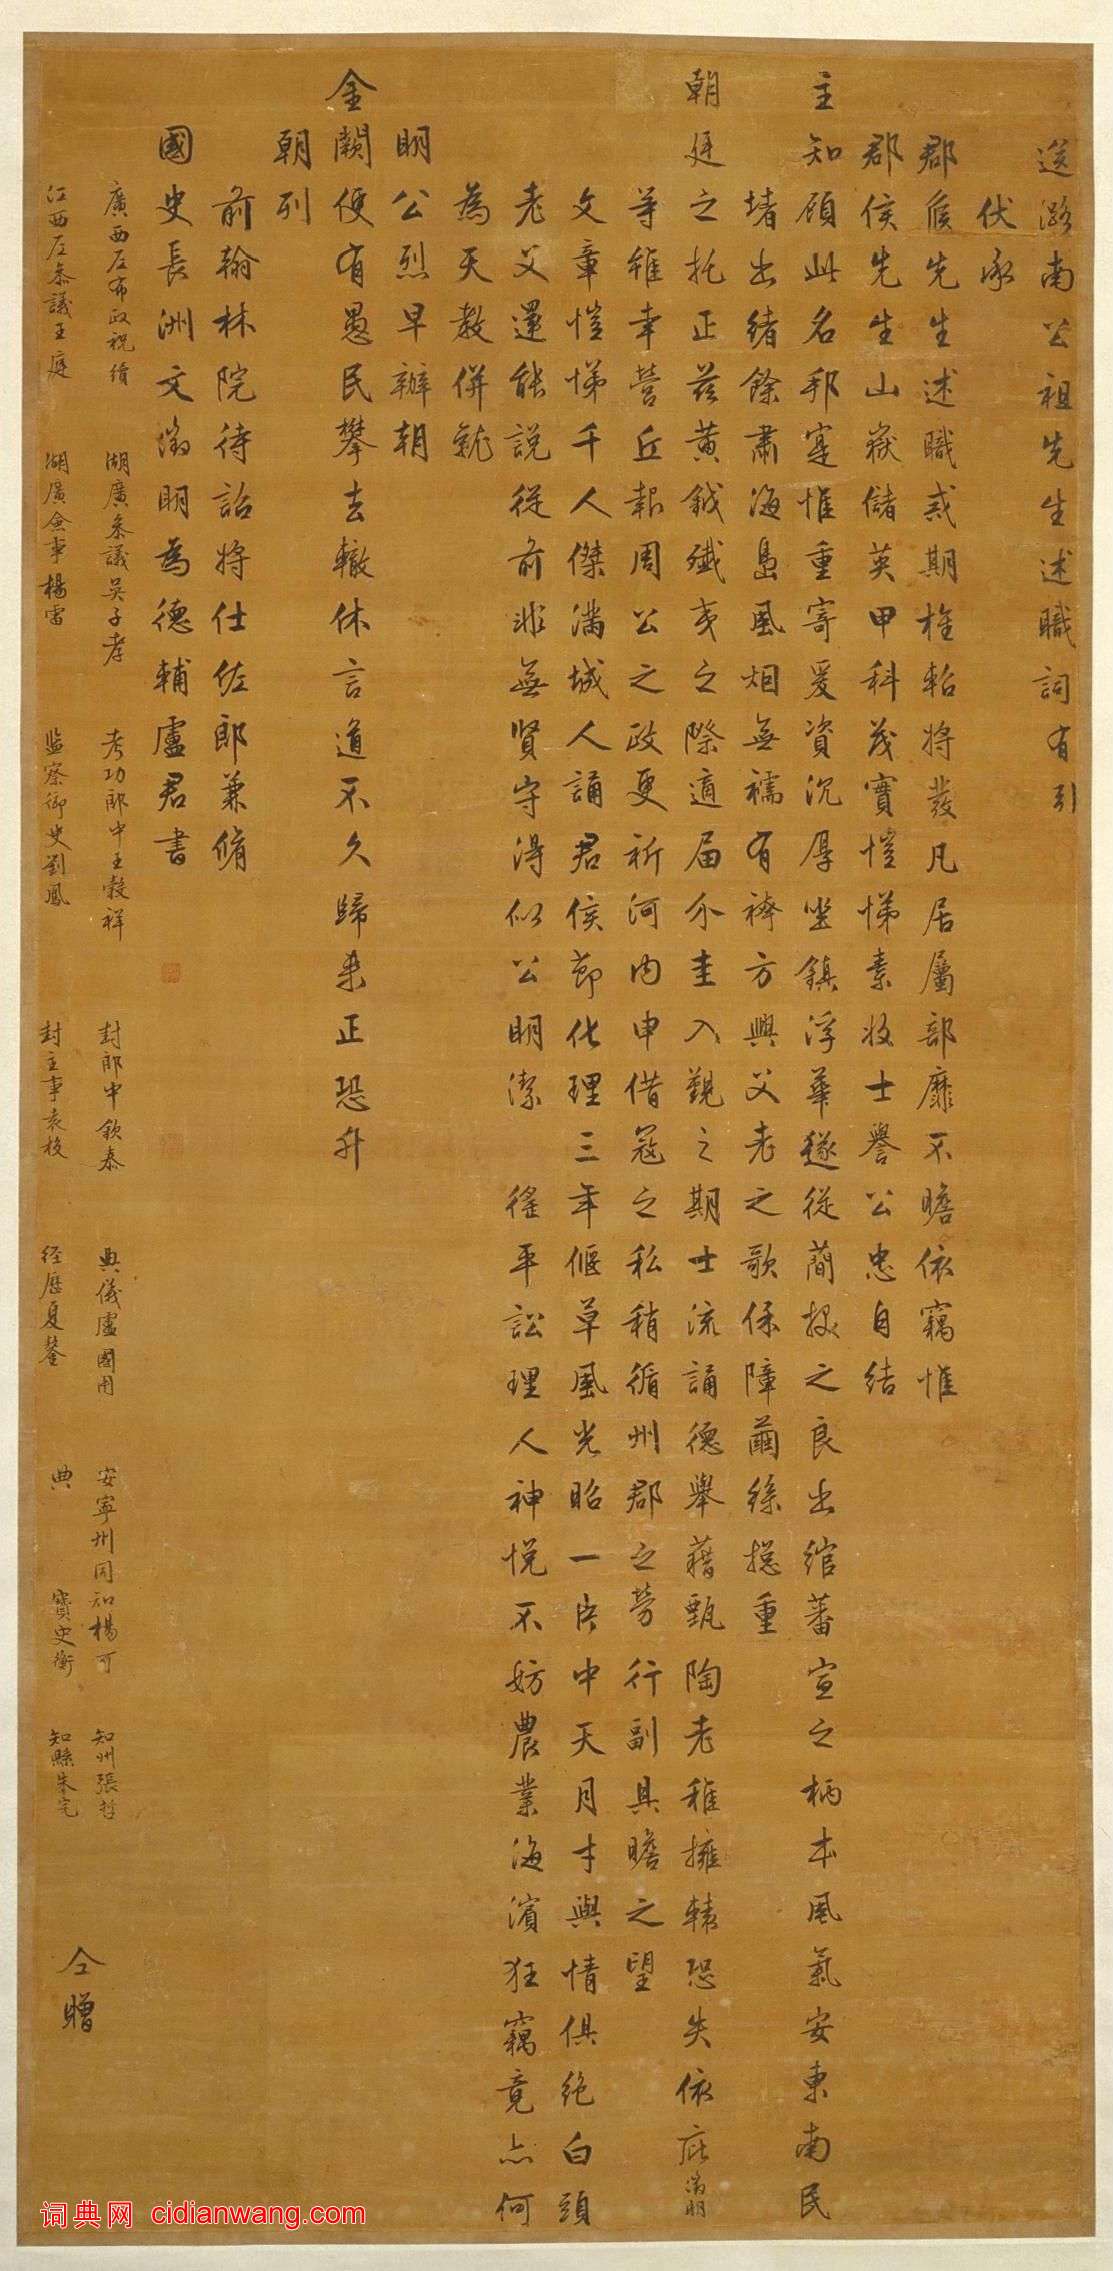 送潞南公祖先生述職詞有引
伏承
郡侯先生述職戒期榷軺將發凡居屬部靡不瞻依竊惟
郡侯先生山嶽儲英甲科茂實愷悌素收士譽公忠自結
主知顧此名邦寔惟重寄爰資沉厚坐鎮浮華遂從簡拔之良出綰蕃宣之柄本風氣安東南民
堵出緒餘肅海島風烟無襦有袴方興父老之歌保障繭絲摠重
朝廷之托正茲黃鉞殲夷之際適届介圭入覲之期士流誦德舉藉甄陶老稚擁轅恐失依庇滿明
等雖幸營丘報周公之政更祈河内申借寇之私稍循州郡之勞行副具瞻之望
文章愷悌千人傑滿城人誦君侯節化理三年偃草風光昭一片中天月才與情俱絶白頭
老父還能說從前非無賢守得似公明潔 徭平訟理人神悅不妨農業海濱狂竊竟亦何
為天教併就
明公烈早辦朝
金闕便有愚民攀去轍休言道不久歸來正恐升
朝列
前翰林院待詔將仕佐郎兼脩
國史長洲文徵明為德輔盧君書
廣西左布政祝續 湖廣參議吳子孝 考功郎中王穀祥 封郎中欽泰 典儀盧國用 安寧州同知楊可 知州張哲
江西左參議王庭 湖廣僉事楊雷 監察御史劉鳳 封主事袁校 経歷夏鏊 典寶史衡 知縣朱宅
仝贈
词典网 cidianwang.com